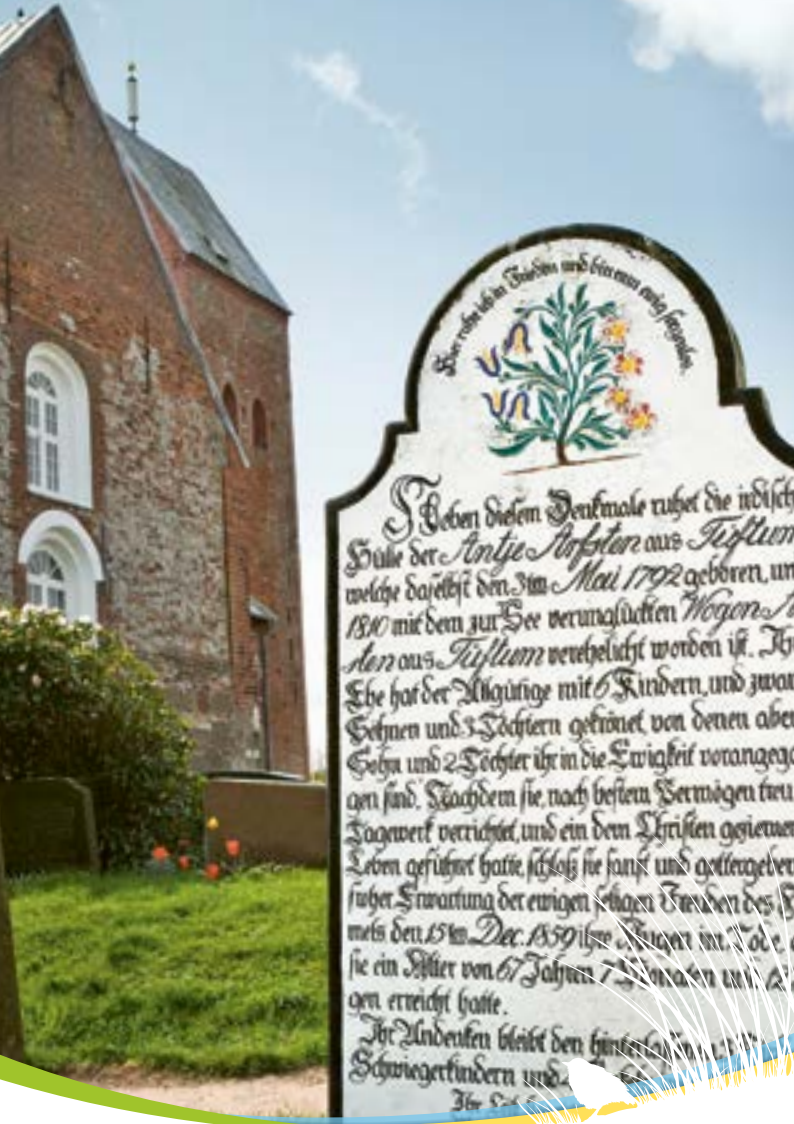 Hier ruhe ich in Frieden und bin nun ewig
Neben diesem Denkmale ruhet die irdisch
Hülle der Antje Arfsten aus Tüftum
welche daselbst den 3ten Mai 1792 geboren, un
1810 mit dem zur See verunglückten Wogon A
sten aus Tüftum verehelicht worden ist. Ih
Ehe hat der Allgütige mit 6 Kindern, und zwar
Söhnen und 3 Töchtern gekrönet, von denen aber
Sohn und 2 Töchter ihr in die Ewigkeit vorangega
gen sind. Nachdem sie, nach bestem Vermögen treu
Tagewerk verrichtet, und ein dem Christen geziemen
Leben geführet hatte, schloß sie sanft und gottergeben
froher Erwartung der ewigen seligen Freuden des
mels den 15ten Dec. 1859 ihre Augen im Tode,
sie ein Alter von 67 Jahren 7 Monaten und 12
gen erreicht hatte.
Ihr Andenken bleibt den
Schwiegerkindern und
Ihr